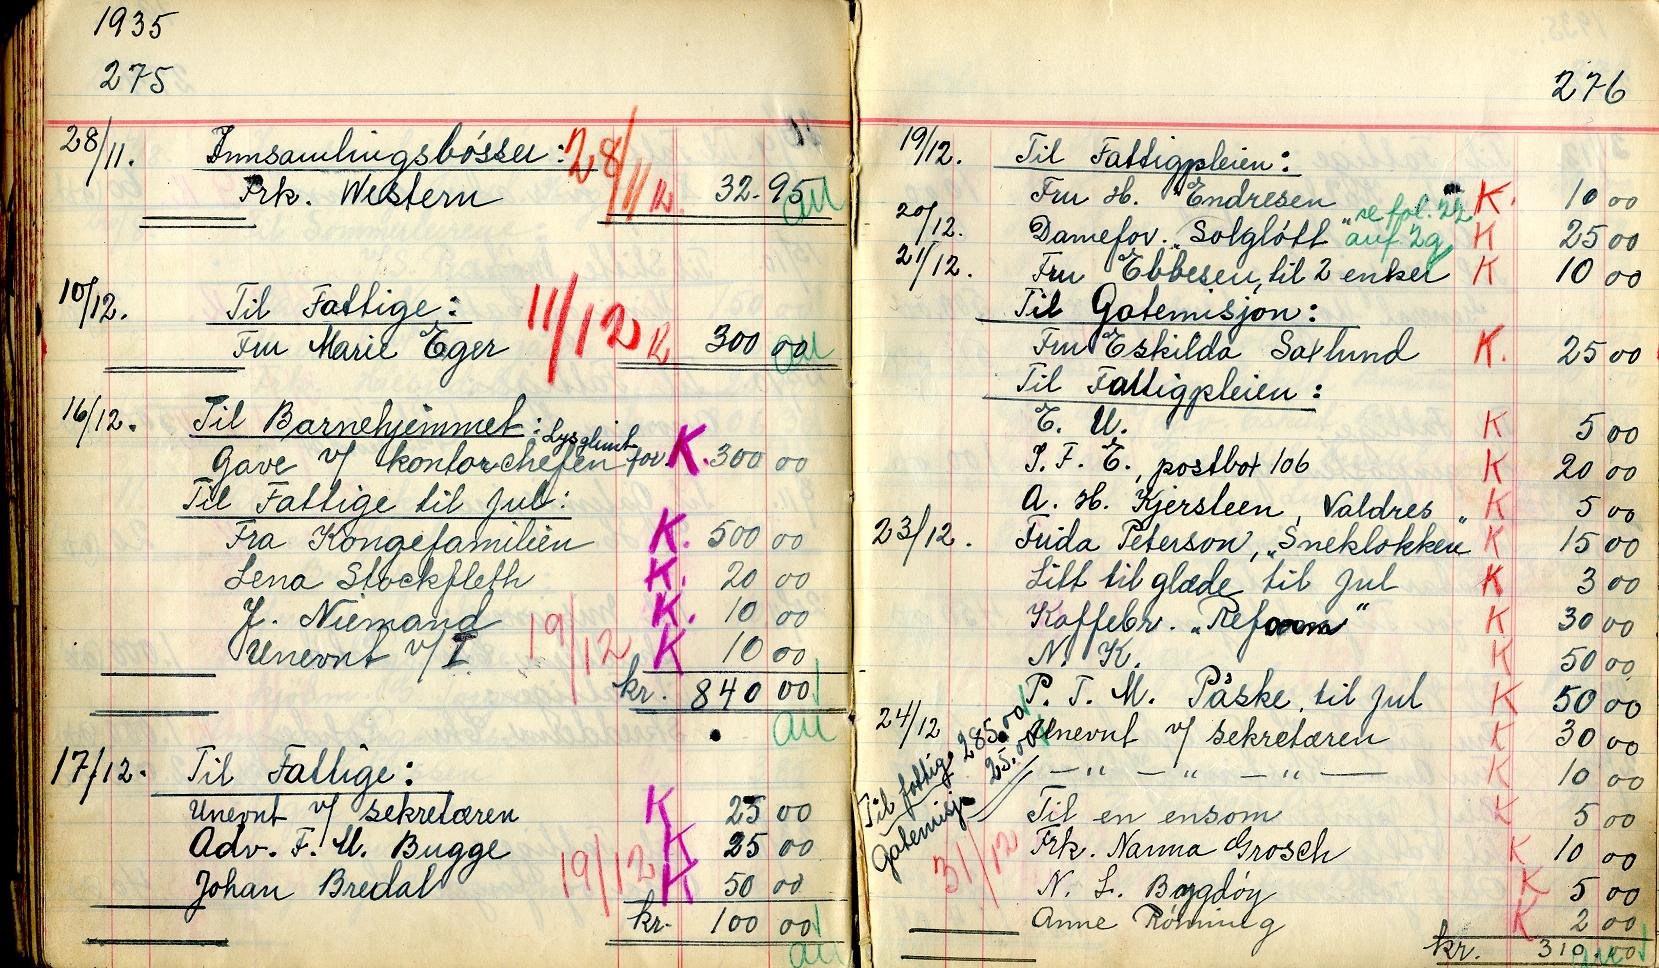 1935
275
28/11. Innsamlingsbösser: 28/11 K
Frk. Western 32-95 au
10/12. Til Fattige: 11/12 K
Fru Marie Eger 300 00 au
16/12. Til Barnehjemmet: Lysglimt
Gave v/ kontorchefen for. K. 300 00
Til Fattige til jul:
Fra Kongefamilien K. 500 00
Lena Stockfleth K. 20 00
J. Niemand K. 10 00
Unevnt v/ I. 19/12 K 10 00
kr. 840 00
au
17/12. Til Fattige:
Unevnt v/ sekretæren K 25 00
Adv. F. M. Bugge K 25 00
Johan Bredal 19/12 K 50 00
kr. 100 00
au
276
19/12. Til Fattigpleien:
Fru H. Endresen K. 10 00
20/12. Damefor. "Solglött" se fol. K 25 00
21/12. Fru Ebbesen, til 2 enker K 10 00
Til Gatemisjon:
Fru Eskilda Saxlund K. 25 00
Til Fattigpleien:
E. U. K 5 00
S. F. E., postbox 106 K 20 00
A. H. Kjersteen, Valdres K 5 00
23/12. Frida Peterson, "Sneklokken" K 15 00
Litt til glæde til jul K 3 00
Kaffebr. "Reform" K 30 00
N. K. K 50 00
P. T. M. Påske, til jul K 50 00
24/12 Unevnt v/ sekretæren K 30 00
— " — " — " — K 10 00
Til en ensom K 5 00
Frk. Nanna Grosch K 10 00
N. L. Bygdöy K 5 00
Anne Rönning K 2 00
kr. 310.00
Til fattige 285.00
Gatemisj. 25.00
31/12